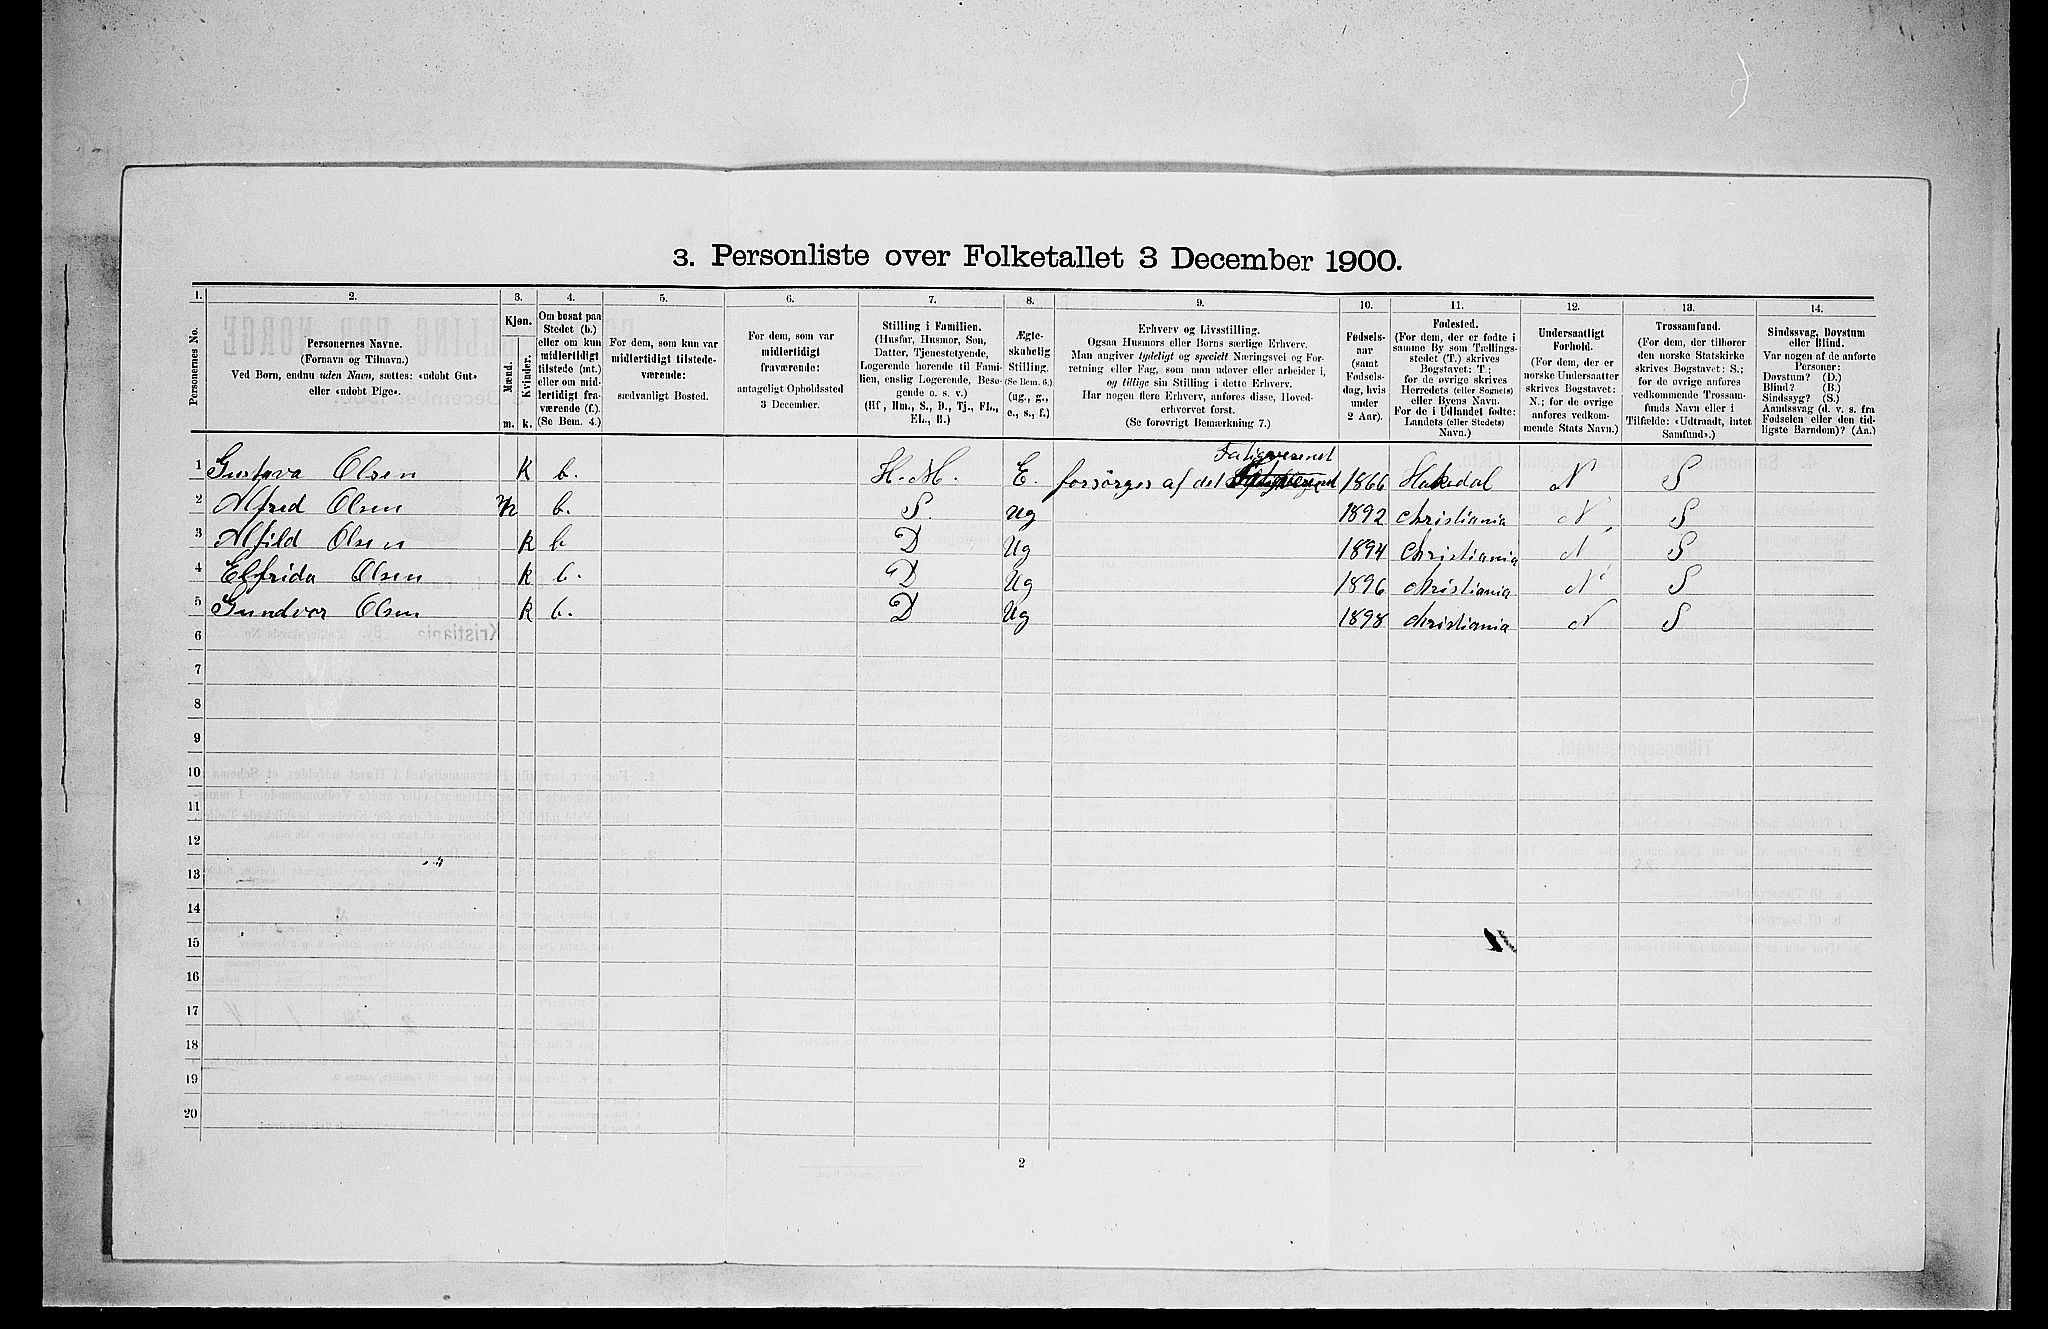 3. Personliste over Folketallet 3 December 1900.
1. 2. 3. 4. 5. 6. 7. 8. 9. 10. 11. 12. 13. 14.
Personernes No.
Personernes Navne.
(Fornavn og Tilnavn.)
Ved Børn, endnu uden Navn, sættes: «udøbt Gut»
eller «udøbt Pige».
Kjøn.
Mænd.
Kvinder.
m. k.
Om bosat paa
Stedet (b.)
eller om kun
midlertidigt
tilstede (mt.)
eller om mid-
lertidigt fra-
værende (f.).
(Se Bem. 4.)
For dem, som kun var
midlertidigt tilstede-
værende:
sædvanligt Bosted.
For dem, som var
midlertidigt
fraværende:
antageligt Opholdssted
3 December.
Stilling i Familien.
(Husfar, Husmor, Søn,
Datter, Tjenestetyende,
Logerende hørende til Fami-
lien, enslig Logerende, Besø-
gende o. s. v.)
(Hf., Hm., S., D., Tj., FL.,
EL., B.)
Ægte-
skabelig
Stilling.
(Se Bem. 6.)
(ug., g.,
e., s., f.)
Erhverv og Livsstilling.
Ogsaa Husmors eller Børns særlige Erhverv.
Man angiver tydeligt og specielt Næringsvei og For-
retning eller Fag, som man udøver eller arbeider i,
og tillige sin Stilling i dette Erhverv.
Har nogen flere Erhverv, anføres disse, Hoved-
erhvervet først.
(Se forøvrigt Bemærkning 7.)
Fødsels-
aar
(samt
Fødsels-
dag, hvis
under
2 Aar).
Fødested.
(For dem, der er fødte i
samme By som Tællings-
stedet (T.) skrives
Bogstavet: T;
for de øvrige skrives
Herredets (eller Sognets)
eller Byens Navn.
For de i Udlandet fødte:
Landets (eller Stedets)
Navn.)
Undersaatligt
Forhold.
(For dem, der er
norske Undersaatter
skrives Bogstavet:
N.; for de øvrige
anføres vedkom-
mende Stats Navn.)
Trossamfund.
(For dem, der tilhører
den norske Statskirke
skrives Bogstavet: S.;
for de øvrige anføres
vedkommende Trossam-
funds Navn eller i
Tilfælde: «Udtraadt, intet
Samfund».)
Sindssvag, Døvstum
eller Blind.
Var nogen af de anførte
Personer:
Døvstum? (D.)
Blind? (B.)
Sindssyg? (S.)
Aandssvag (d. v. s. fra
Fødselen eller den tid-
ligste Barndom)? (Aa.)
Fatigvesenet
1 Gustava Olsen K b. H.M. E. forsörges af det 1866 Hakedal N S
2 Alfred Olsen m b. S. Ug 1892 Christiania N S
3 Alfild Olsen K b D Ug 1894 Christiania N S
4 Elfrida Olsen K b. D Ug 1896 Christiania N S
5 Gundvor Olsen K b. D Ug 1898 Christiania N S
6
7
8
9
10
11
12
13
14
15
16
17
18
19
20
2